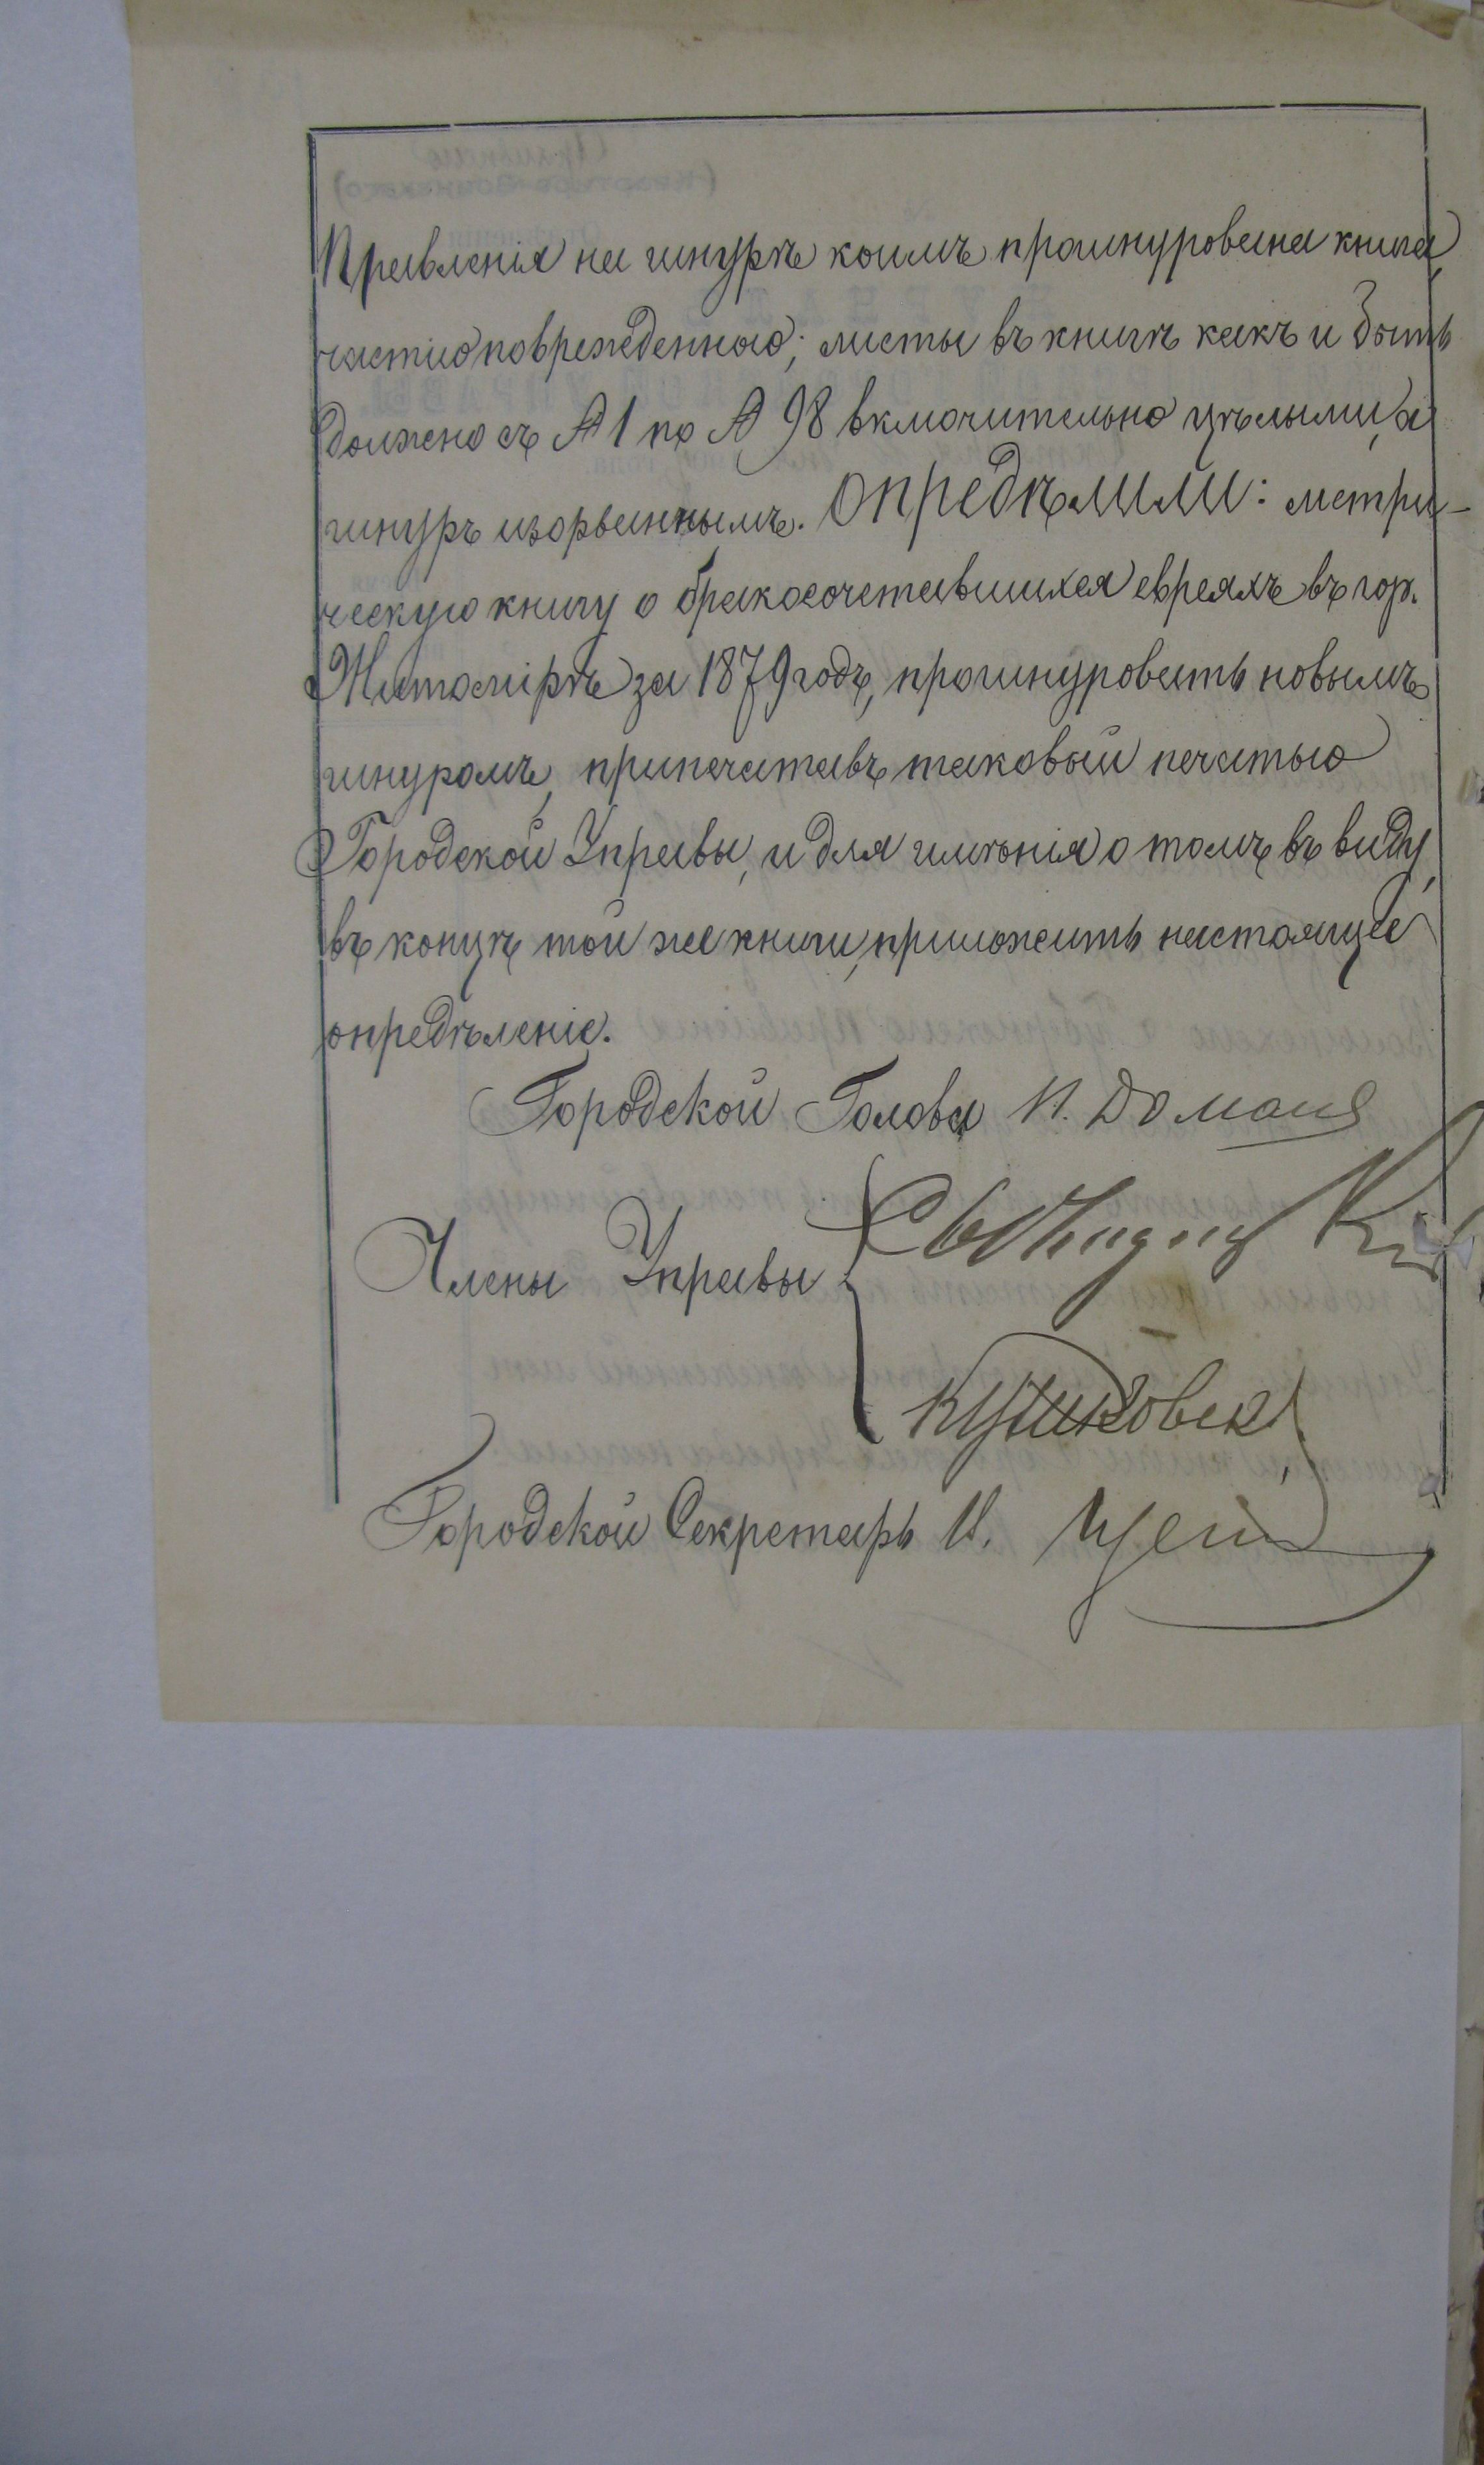 Правленія на шнурѣ коимъ прошнурована книга,
частію поврежденною; листы въ книгѣ какъ и быть
должно съ № 1 по № 98 включительно цѣлыми, а
шнуръ изорваннымъ. Опредѣлили: метри-
ческую книгу о бракосочетавшихся евреяхъ въ гор.
Житомірѣ за 1879 годъ, прошнуровать новымъ
шнуромъ, припечатавъ таковый печатью
Городской Управы, и для имѣнія о томъ въ виду,
въ концѣ той же книги, приложить настоящее
опредѣленіе.
Городской Голова И. Доманев
Члены Управы
Городской Секретарь И.